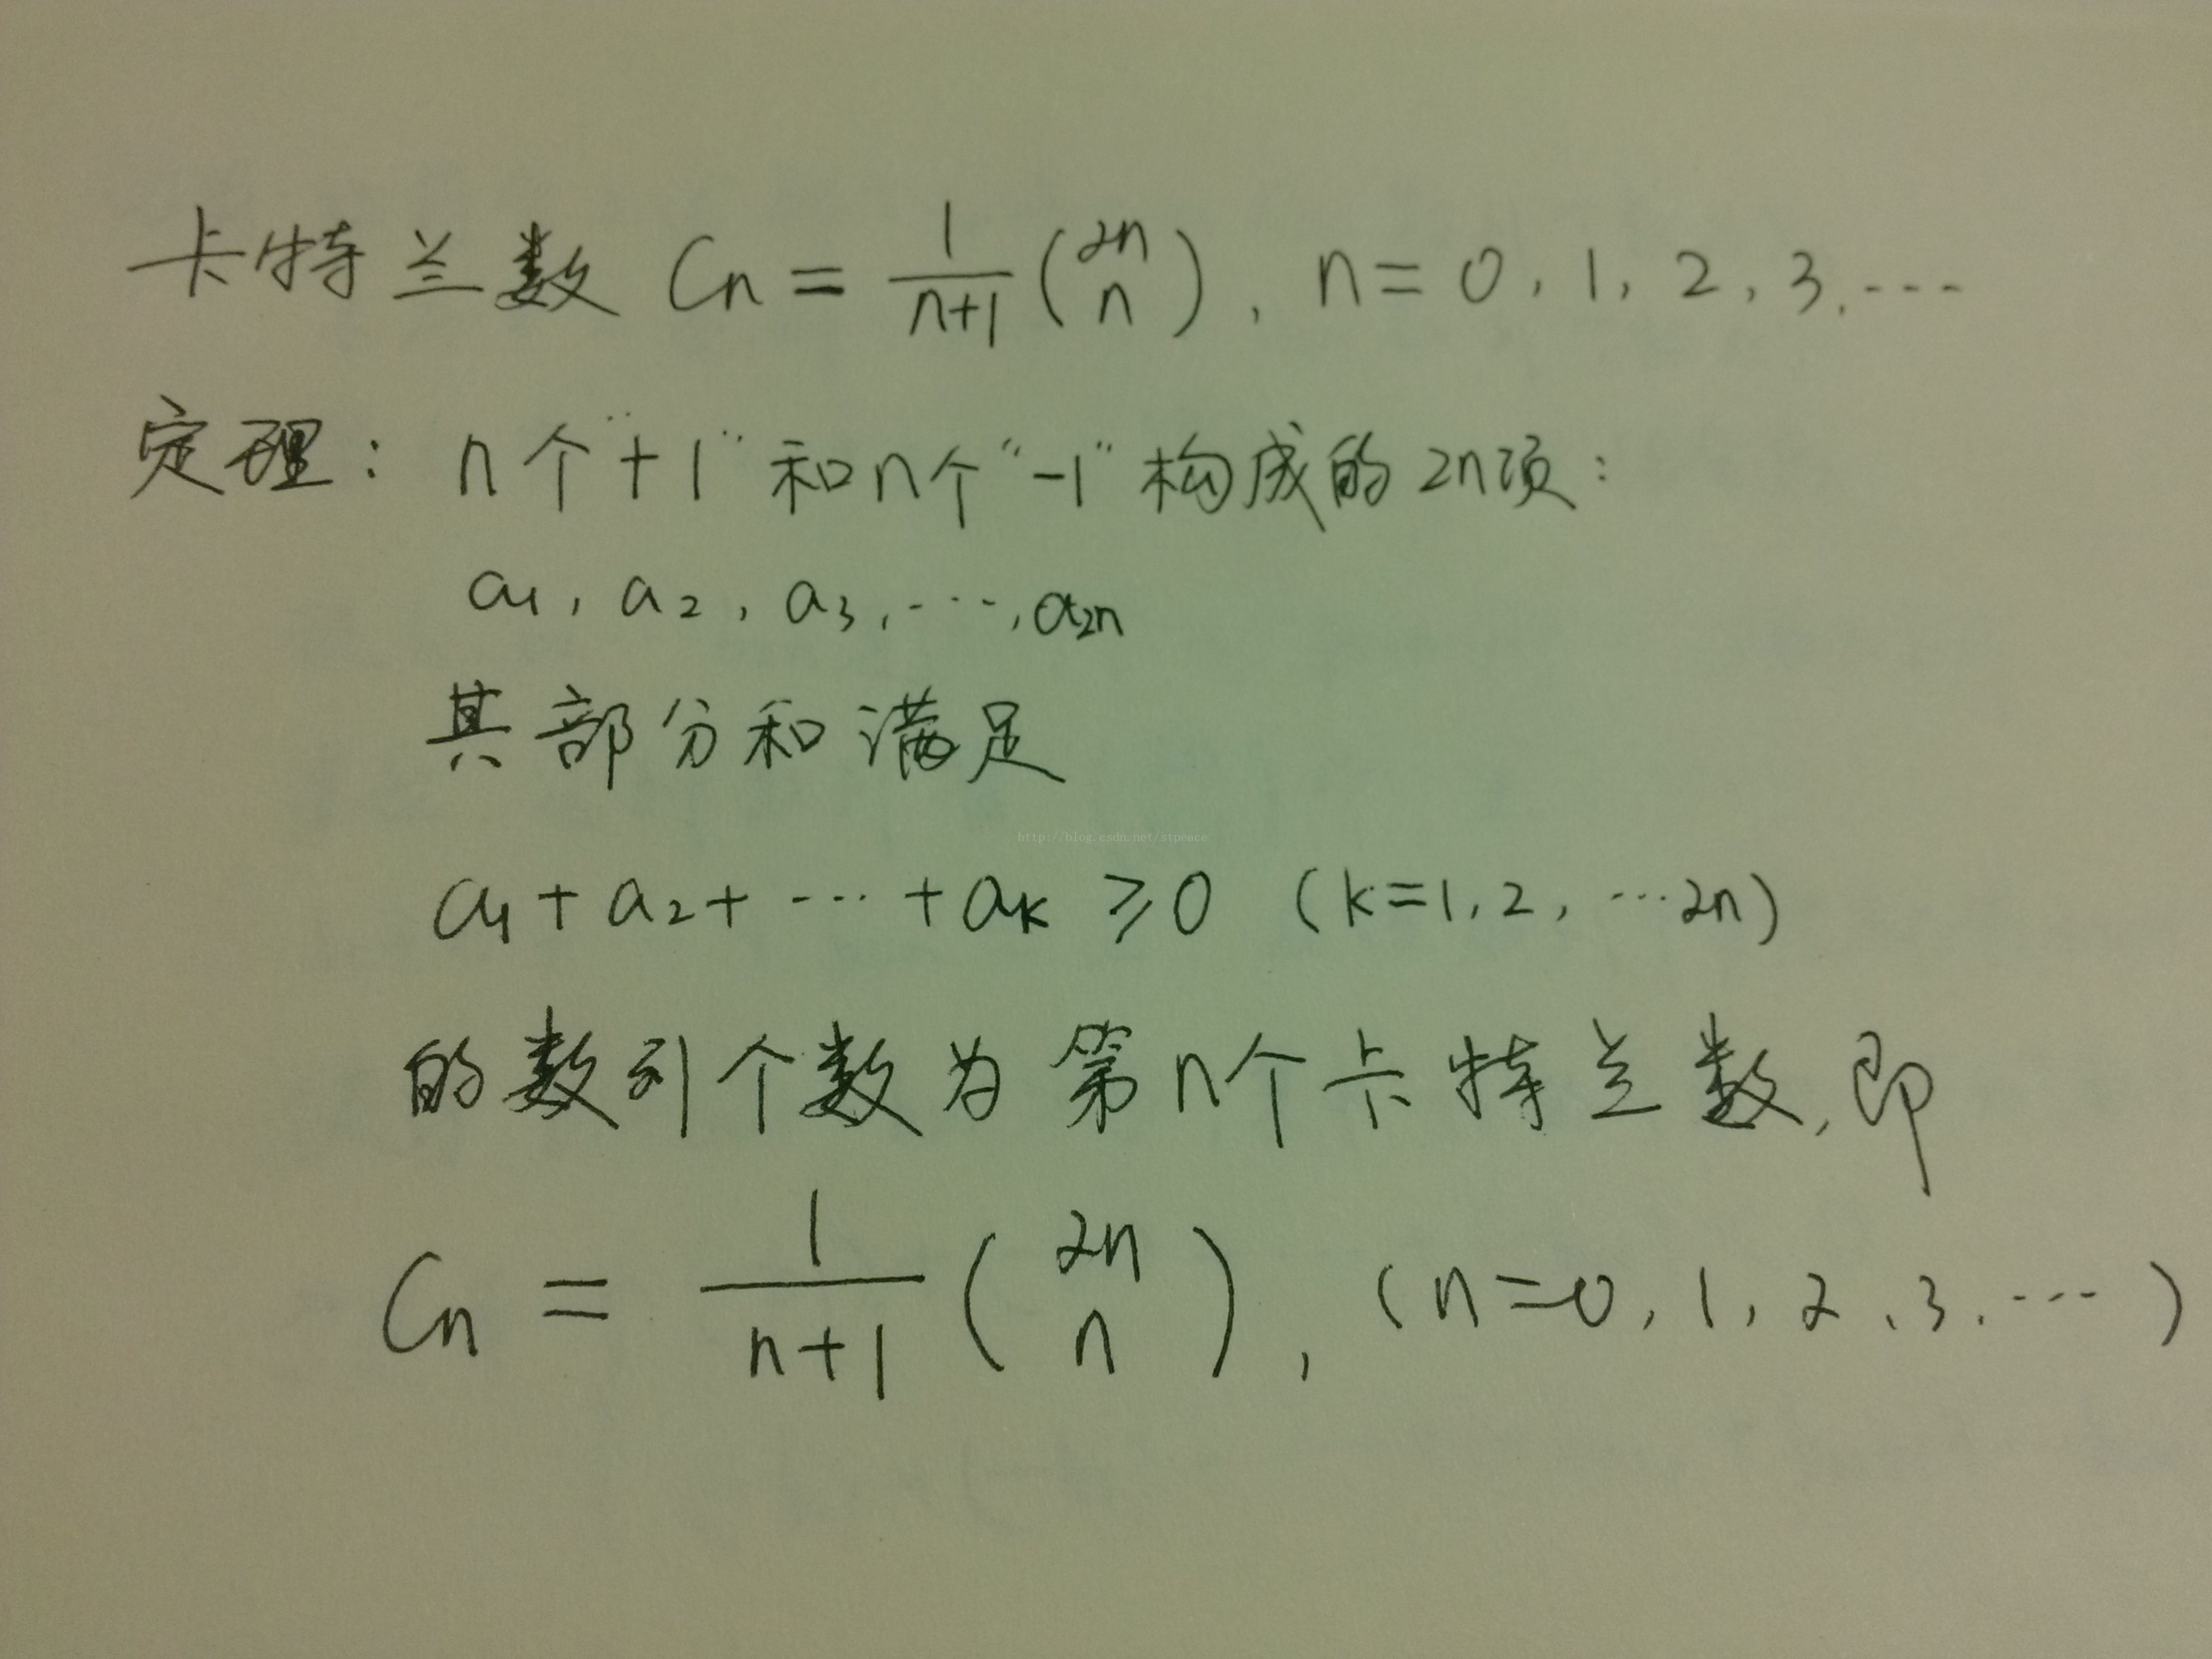 卡特兰数 Cn = \frac{1}{n+1} \binom{2n}{n}, n = 0, 1, 2, 3, ...
定理: n个"+1"和n个"-1"构成的2n项:
a₁, a₂, a₃, ..., a₂ₙ
其部分和满足
http://blog.csdn.net/stpeace
a₁ + a₂ + ... + aₖ ≥ 0 (k=1, 2, ... 2n)
的数列个数为第n个卡特兰数, 即
Cn = \frac{1}{n+1} \binom{2n}{n}, (n=0, 1, 2, 3, ...)